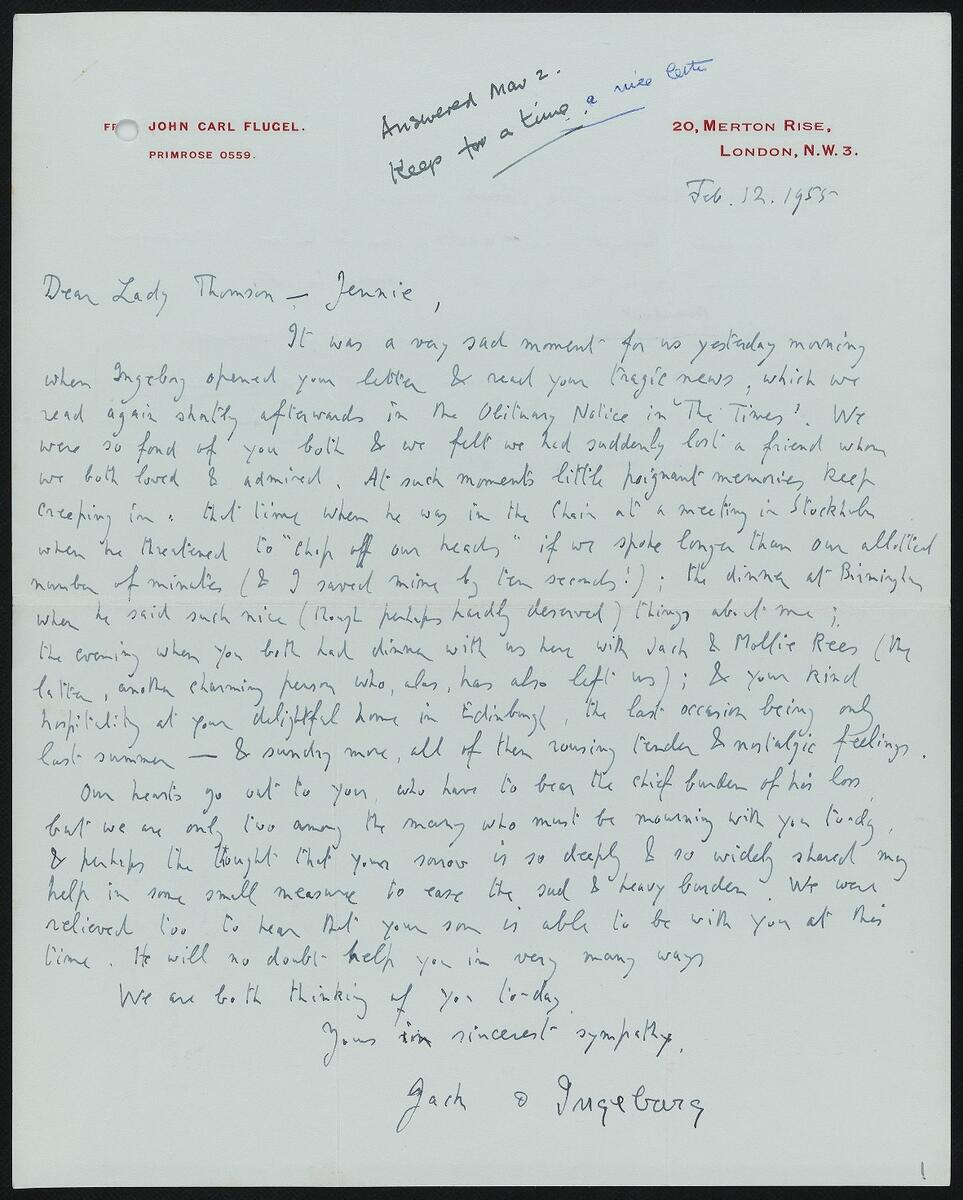 Answered Mar 2.
Keep for a time. a nice letter
JOHN CARL FLUGEL.
PRIMROSE 0559.
20, MERTON RISE,
LONDON, N.W. 3.
Feb. 12. 1955
Dear Lady Thomson — Jennie,
It was a very sad moment for us yesterday morning
when Ingeborg opened your letter & read your tragic news, which we
read again shortly afterwards in the Obituary Notice in 'The Times'. We
were so fond of you both & we felt we had suddenly lost a friend whom
we both loved & admired. At such moments little poignant memories keep
creeping in: that time when he was in the Chair at a meeting in Stockholm
when he threatened to "chip off our heads" if we spoke longer than our allotted
number of minutes (& I saved mine by ten seconds!); the dinner at Birmingham
when he said such nice (though perhaps hardly deserved) things about me;
the evening when you both had dinner with us here with Jack & Mollie Rees (the
latter, another charming person who, alas, has also left us); & your kind
hospitality at your delightful home in Edinburgh, the last occasion being only
last summer — & sundry more, all of them rousing tender & nostalgic feelings.
Our hearts go out to you, who have to bear the chief burden of his loss,
but we are only two among the many who must be mourning with you to-day,
& perhaps the thought that your sorrow is so deeply & so widely shared may
help in some small measure to ease the sad & heavy burden. We were
relieved too to hear that your son is able to be with you at this
time. He will no doubt help you in very many ways
We are both thinking of you to-day.
Yours in sincerest sympathy,
Jack & Ingeborg
1